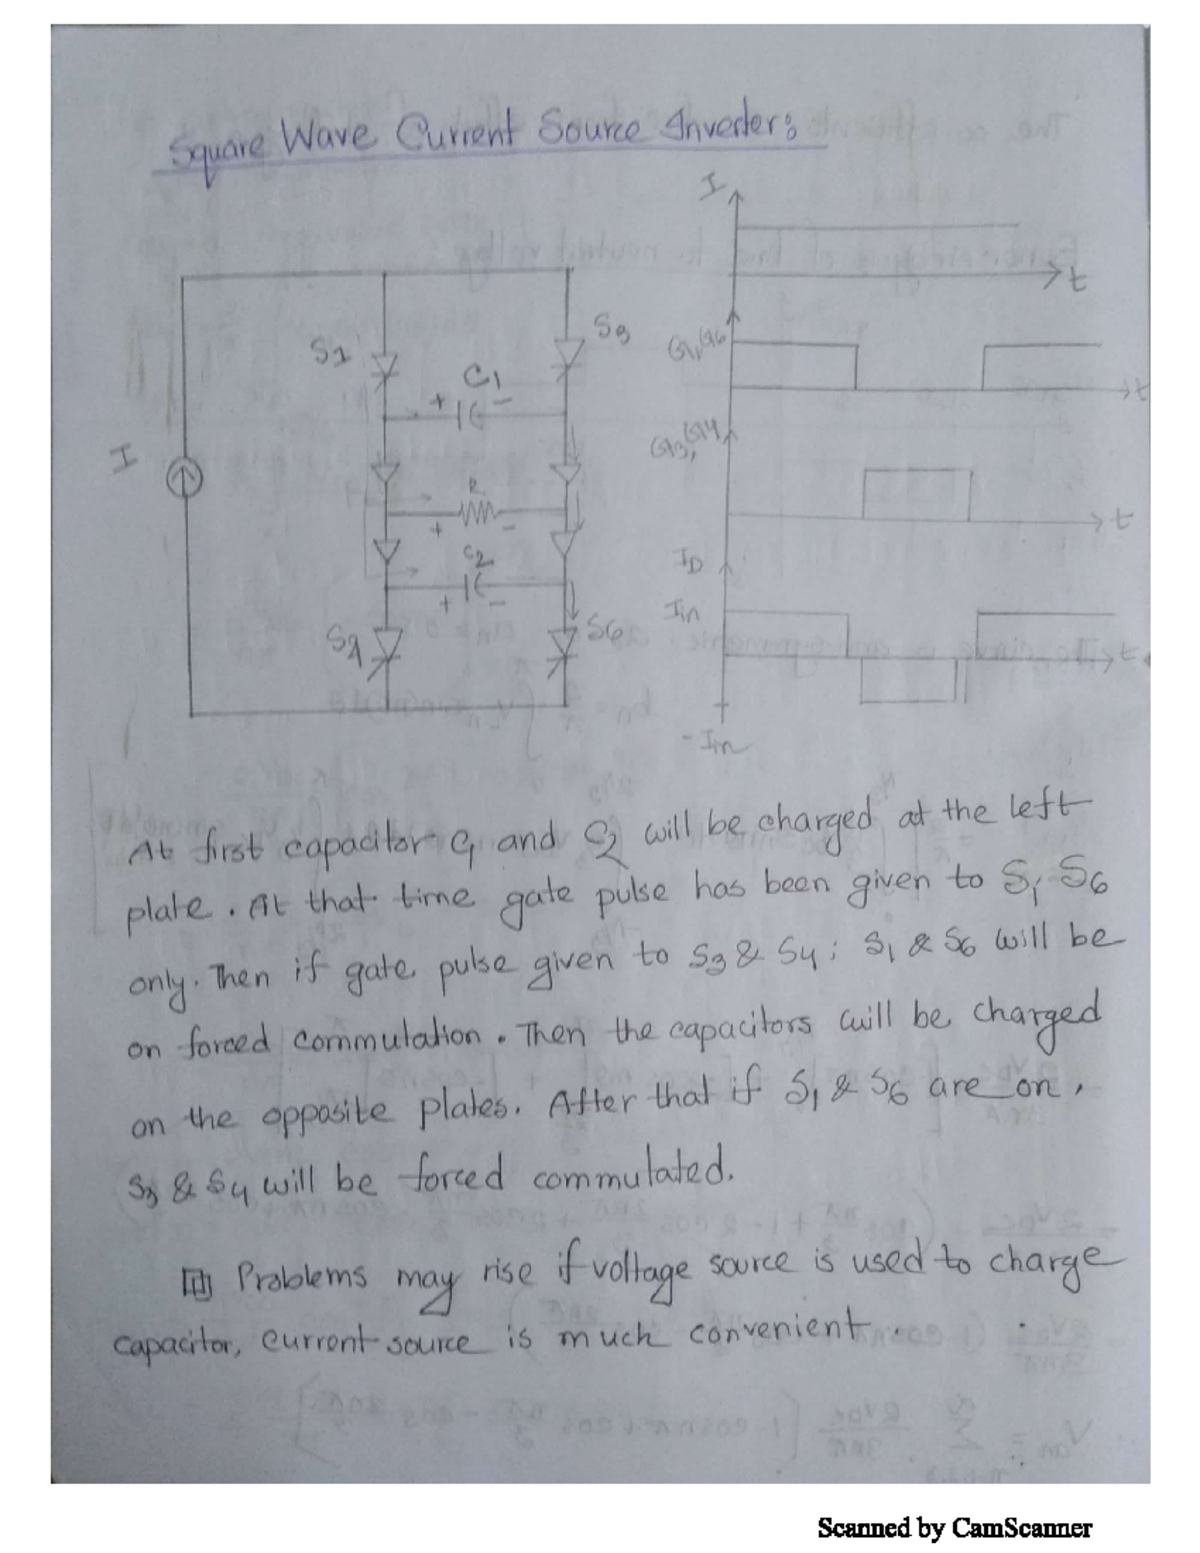 Square Wave Current Source Inverter:
I
t
S1
S3
G1,G6
C1
+
-
t
I
G3,G4
R
+
-
t
C2
ID
+
-
Iin
S4
S6
t
-Iin
At first capacitor C1 and C2 will be charged at the left
plate. At that time gate pulse has been given to S1 S6
only. Then if gate pulse given to S3 & S4; S1 & S6 will be
on forced commutation. Then the capacitors will be charged
on the opposite plates. After that if S1 & S6 are on,
S3 & S4 will be forced commutated.
Problems may rise if voltage source is used to charge
capacitor, current source is much convenient.
Scanned by CamScanner